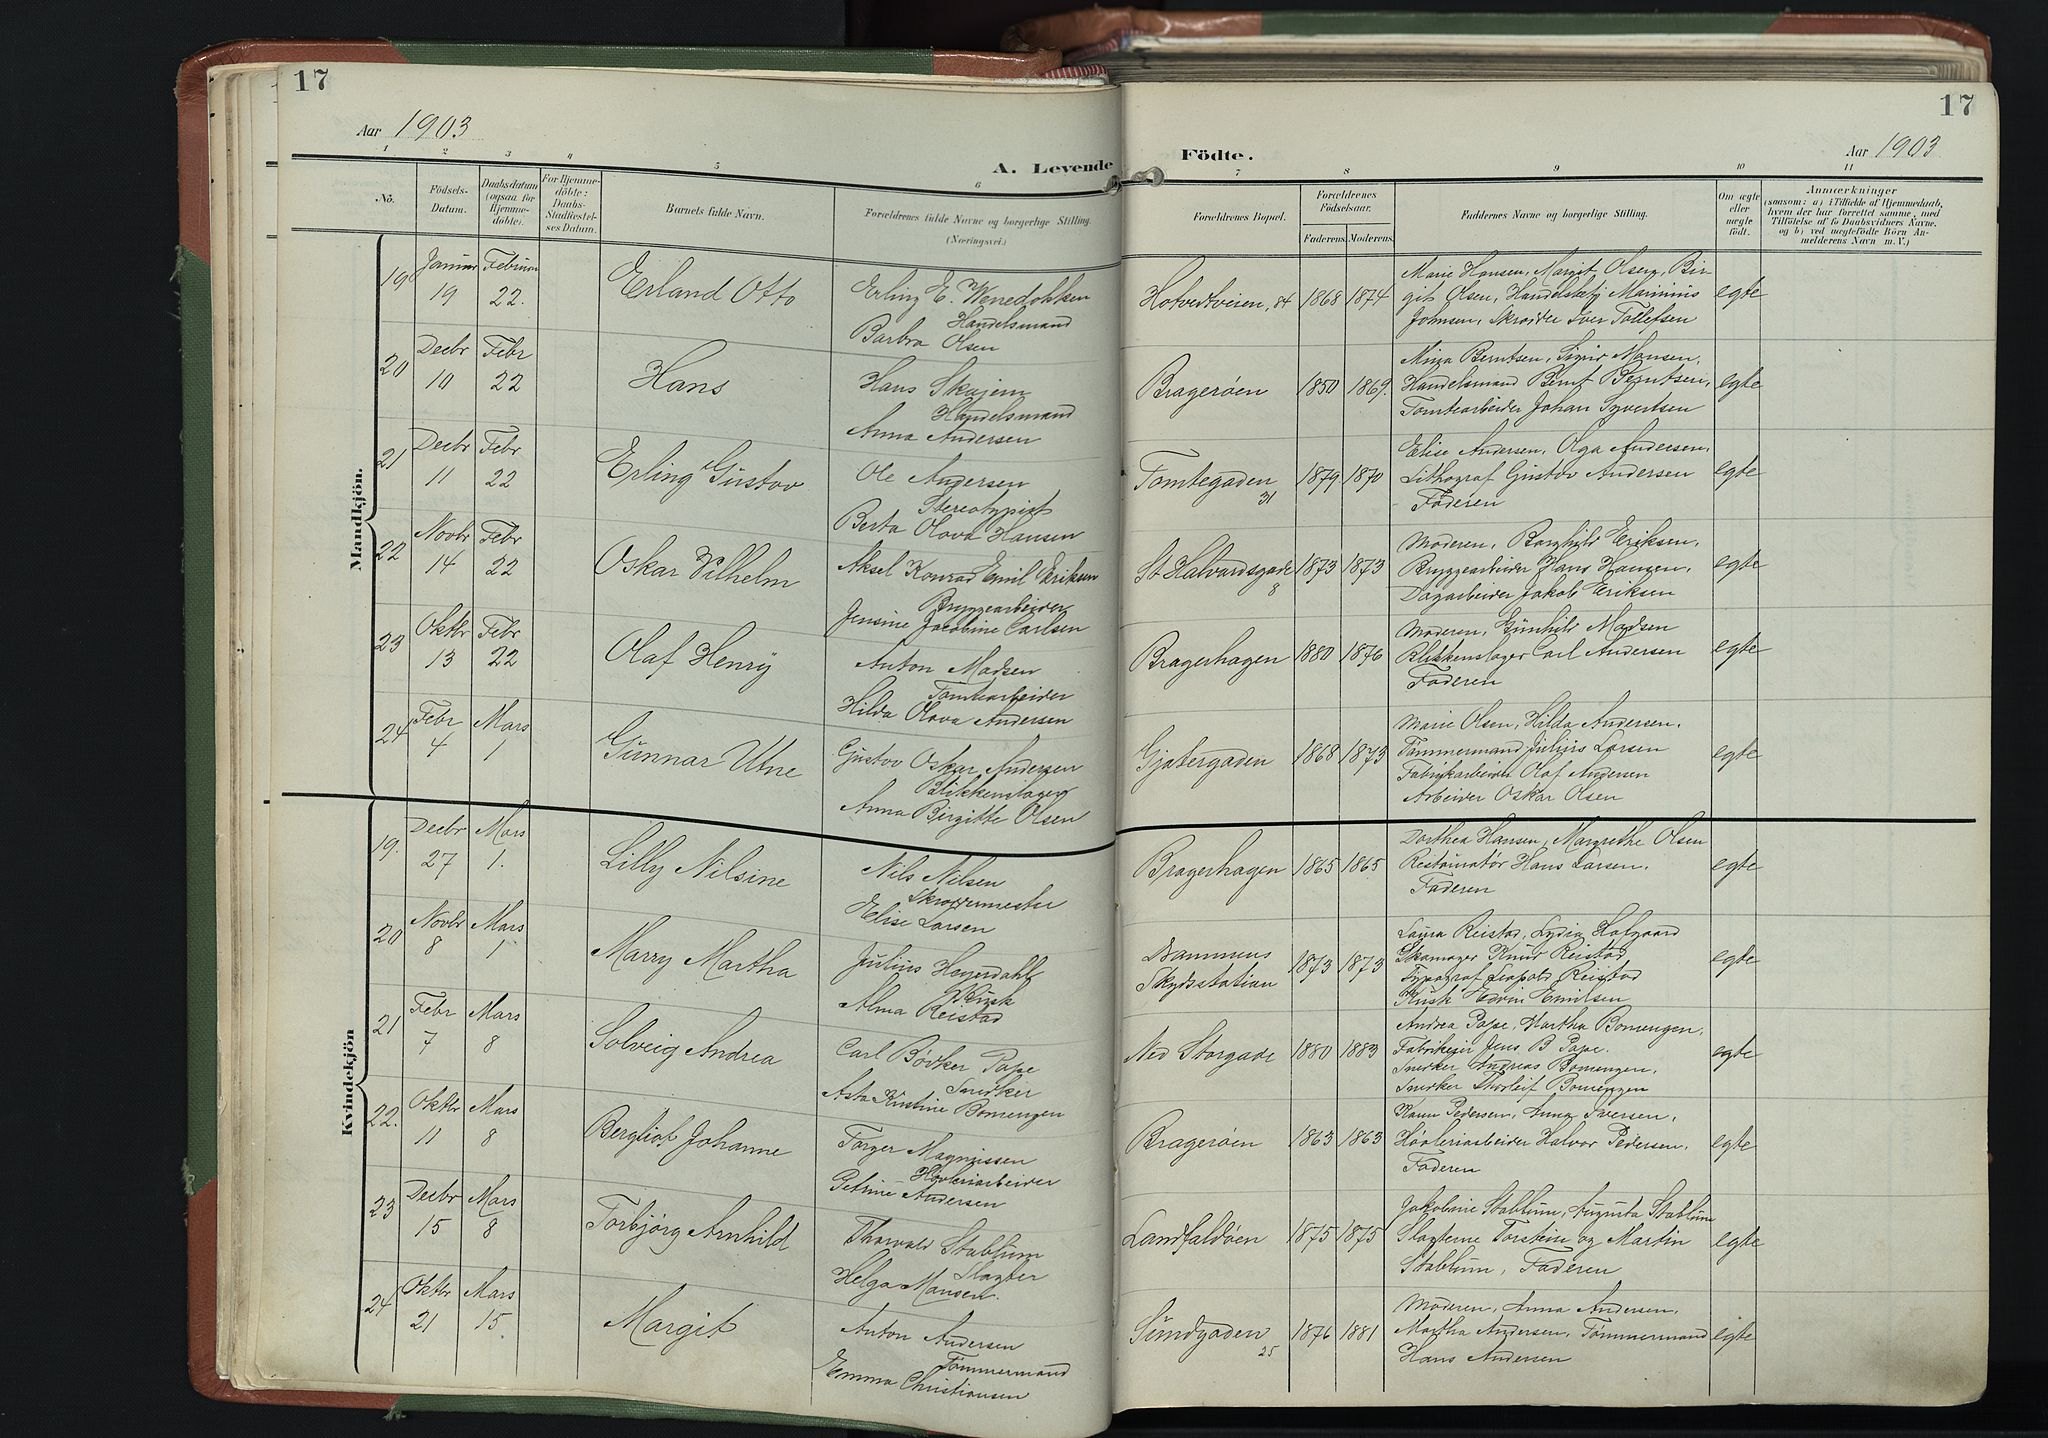 17
Aar 1903
A. Levende
1 2 3 4 5 6
Nö.
Födsels-
Datum.
Daabsdatum
(ogsaa for
Hjemme-
döbte).
For Hjemme-
döbte:
Daabs-
Stadfæstel-
ses Datum.
Barnets fulde Navn.
Forældrenes fulde Navne og borgerlige Stilling.
(Næringsvei.)
Mandkjön.
19 Januar 19 Februar 22. Erland Otto
Erling E.
Handelsmand
Barbra Olsen
20 Decbr 10 Febr 22 Hans
Hans Skajem
Handelsmand
Anna Andersen
21 Decbr 11 Febr 22 Erling Gustav
Ole Andersen
Stereotypist
Berta Olava Hansen
22 Novbr 14 Febr 22 Oskar Vilhelm
Aksel Konrad Emil Eriksen
Bryggearbeider
Jensine Jacobine Carlsen
23 Oktbr 13 Febr 22 Olaf Henry
Anton Madsen
Tomtearbeider
Hilda Olava Andersen
24 Febr 4 Mars 1 Gunnar Utne
Gustav Oskar Andersen
Blikkenslager
Anna Birgitte Olsen
Kvindekjön
19. Decbr 27 Mars 1. Lilly Nilsine
Nils Nilsen
Elise Larsen
20 Novbr 8 Mars 1 Marry Martha
Julius Heyerdahl
Kusk
Alma Reistad
21 Febr 7 Mars 8 Solveig Andrea
Carl Bödker Pape
Snedker
Asta Kristine Bomengen
22. Oktbr 11 Mars 8 Bergliot Johanne
Torger Magnussen
Høvleriarbeider
Petrine Andersen
23 Decbr 15 Mars 8 Torbjørg Arnhild
Thorvald Stablum
Slagter
Helga Mansen.
24 Oktbr 21 Mars 15. Margit
Anton Andersen
Tømmermand
Emma Christiansen
17
Födte.
Aar 1903
7 8 9 10 11
Forældrenes Bopæl.
Forældrenes
Födselsaar.
Faderens. Moderens.
Faddernes Navne og borgerlige Stilling.
Om ægte
eller
uægte
födt.
Anmærkninger
(saasom: a) i Tilfælde af Hjemmedaab,
hvem der har forrettet samme, med
Tilföielse af to Daabsvidners Navne,
og b) ved uægtefödte Börn An-
melderens Navn m. V.)
Marie Hansen, Margit Olsen, Bir
Hotvedtveien, 84 1868 1874 git Olsen, Handelsbetj Marinius egte
Johnsen, Skrædder Iver Tollefsen
Mina Berntsen, Sigrid Monsen,
Bragerøen 1850 1869. Handelsmand Bernt Berntsen, egte
Tomtearbeider Johan Syvertsen
Elise Andersen, Olga Andersen,
Tomtegaden 31 1879 1870 Lithograf Gustav Andersen egte
Faderen
Moderen, Borghild Eriksen,
St Halvardsgade 8 1873 1873 Bryggearbeider Hans Hansen, egte
Dagarbeider Jakob Eriksen
Moderen, Gunhild Madsen
Bragerhagen 1880 1876 Blikkenslager Carl Andersen egte
Faderen
Marie Olsen, Hilda Andersen,
Gjetergaden 1868 1873 Tømmermand Julius Larsen egte
Fabrikarbeider Olaf Andersen
Arbeider Oskar Olsen
Dorthea Hansen, Margrethe Olsen
Bragerhagen 1865 1865 Restauratør Hans Larsen, egte
Faderen
Laura Reistad, Lydia Halgaard
Drammens
Skydsstation 1873 1873 Skomager Knud Reistad egte
Typograf Leopold Reistad
Kusk Edvin Emilsen
Andrea Pape, Martha Bomengen,
Ned Storgade 1880 1883 Fabrikeier Jens B Pape. egte
Snedker Andreas Bomengen,
Snedker Thorleif Bomengen
Karen Pedersen, Anna Iversen,
Bragerøen 1863 1863 Høvleriarbeider Halvor Pedersen, egte
Faderen
Jakobine Stablum, Augusta Stablum
Landfaldøen 1875 1875 Slagterne Torstein og Martin egte
Stablum, Faderen
Moderen, Anna Andersen,
Sundgaden 25 1876 1881 Martha Andersen, Tømmermand egte
Hans Andersen